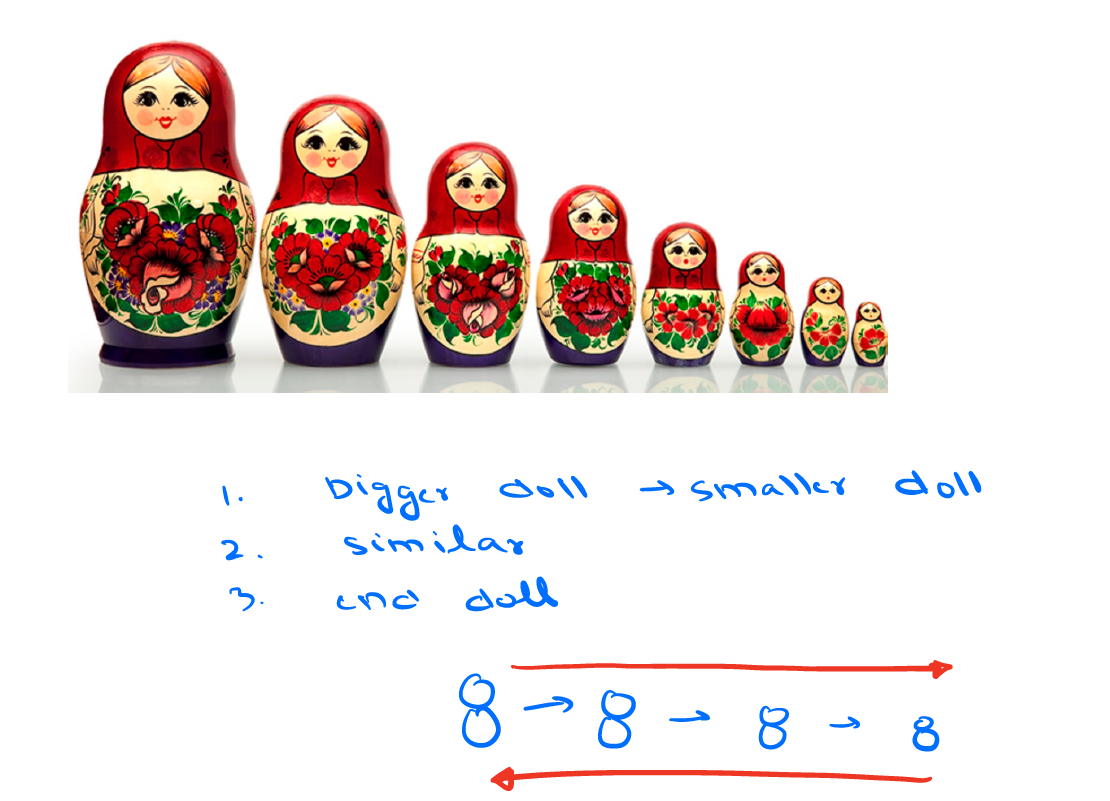 1. Bigger doll → smaller doll
2. similar
3. end doll
8 → 8 → 8 → 8